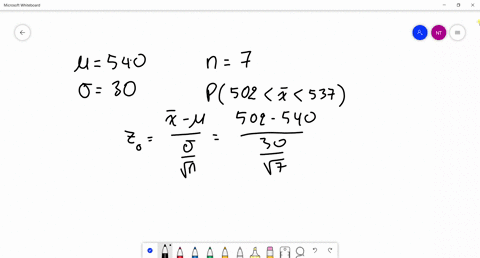 Microsoft Whiteboard
NT
μ = 540 n = 7
σ = 30 P(502 < x̄ < 537)
z₀ = (x̄ - μ)/(σ/√n) = (502 - 540)/(30/√7)